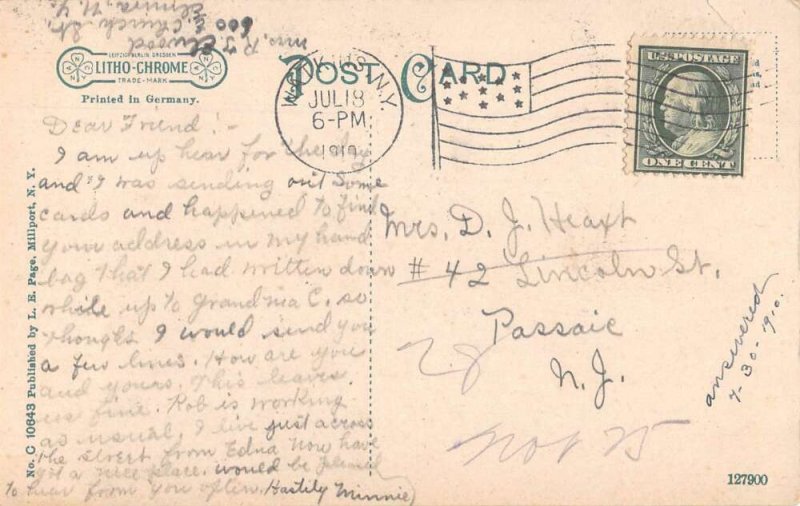 Mrs. R. J. Elwood
600 E. Church St.
Elmira N.Y.
LEIPZIG BERLIN DRESDEN
LITHO-CHROME
TRADE-MARK
Printed in Germany.
POST CARD
N.Y.
JUL 18
6-PM
1910
U.S. POSTAGE
ONE CENT
Dear Friend:-
I am up hear for the day
and I was sending out some
cards and happened to find
your address in my hand
bag that I had written down
while up to Grandma C. so
thought I would send you
a few lines. How are you
and yours. This leaves
us fine. Rob is working
as usual. I live just across
the street from Edna now have
got a nice place. would be pleased
to hear from you often. Hastily Minnie
Mrs. D. J. Heaxt
# 42 Lincoln St.
Passaic
N. J.
28
answered
7-30-1910.
No. C 10643 Published by L. E. Page, Millport, N. Y.
127900